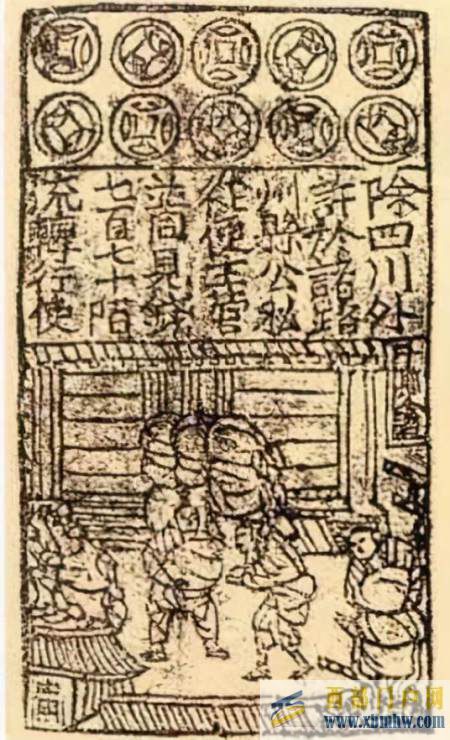 除四川外
許於諸路
州縣公私
從便主管
並同見錢
七百七十陌
流轉行使
西部门户网
www.xbmhw.com